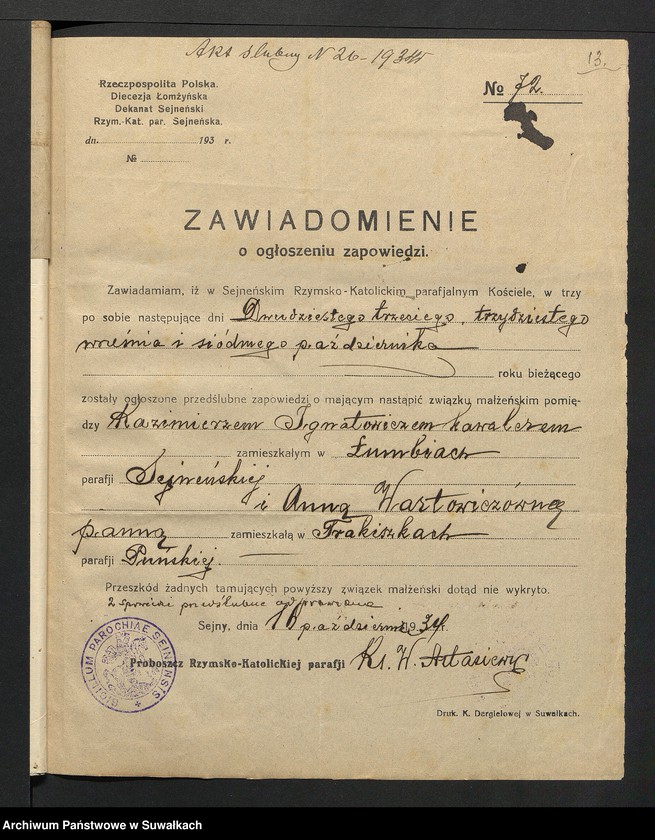 Akt ślubny N 26 - 1934 r
13.
Rzeczpospolita Polska.
Diecezja Łomżyńska
Dekanat Sejneński
Rzym.-Kat. par. Sejneńska.
dn. 193 r.
№
№ 72.
ZAWIADOMIENIE
o ogłoszeniu zapowiedzi.
Zawiadamiam, iż w Sejneńskim Rzymsko-Katolickim parafjalnym Kościele, w trzy
po sobie następujące dni Dwudziestego trzeciego, trzydziestego
września i siódmego października
roku bieżącego
zostały ogłoszone przedślubne zapowiedzi o mającym nastąpić związku małżeńskim pomię-
dzy Kazimierzem Ignatowiczem kawalerem
zamieszkałym w Łumbiach
parafji Sejneńskiej
i Anną Wartowiczówną
panną zamieszkałą w Trakiszkach
parafji Puńskiej.
Przeszkód żadnych tamujących powyższy związek małżeński dotąd nie wykryto.
2 spowiedzi przedślubne odprawiono
Sejny, dnia 10 października 1934 r.
Proboszcz Rzymsko-Katolickiej parafji Ks. W.
SIGILLUM PAROCHIAE SEJNENSIS
Druk. K. Dergielowej w Suwałkach.
Archiwum Państwowe w Suwałkach